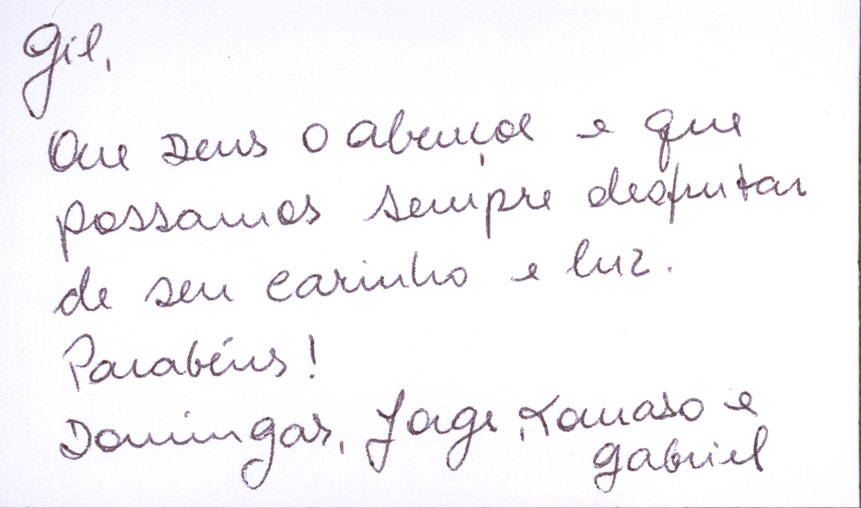 Gil,
Que Deus o abençoe e que
possamos sempre desfrutar
de seu carinho e luz.
Parabéns!
Domingas, Jorge, e
Gabriel